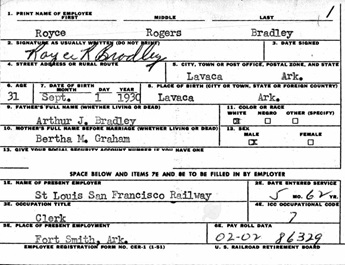 1
1. PRINT NAME OF EMPLOYEE
FIRST MIDDLE LAST
Royce Rogers Bradley
2. SIGNATURE AS USUALLY WRITTEN (DO NOT PRINT) 3. DATE SIGNED
Royce R Bradley
4. STREET ADDRESS OR RURAL ROUTE 5. CITY, TOWN OR POST OFFICE, POSTAL ZONE, AND STATE
Lavaca Ark.
6. AGE 7. DATE OF BIRTH MONTH DAY YEAR 8. PLACE OF BIRTH (CITY OR TOWN, STATE OR FOREIGN COUNTRY)
31 Sept. 1 1930 Lavaca Ark.
9. FATHER'S FULL NAME (WHETHER LIVING OR DEAD) 11. COLOR OR RACE
WHITE NEGRO OTHER (SPECIFY)
Arthur J. Bradley
10. MOTHER'S FULL NAME BEFORE MARRIAGE (WHETHER LIVING OR DEAD) 12. SEX
MALE FEMALE
Bertha M. Graham
13. GIVE YOUR SOCIAL SECURITY ACCOUNT NUMBER IF YOU HAVE ONE
SPACE BELOW AND ITEMS 7E AND 8E TO BE FILLED IN BY EMPLOYER
1E. NAME OF PRESENT EMPLOYER 2E. DATE ENTERED SERVICE
St Louis San Francisco Railway 5 MO. 62 YR.
3E. OCCUPATION TITLE 4E. ICC OCCUPATIONAL CODE
Clerk 7
5E. PLACE OF PRESENT EMPLOYMENT 6E. PAY ROLL DATA
Fort Smith, Ark. 02-02 86329
EMPLOYEE REGISTRATION FORM NO. CER-1 (1-51) U. S. RAILROAD RETIREMENT BOARD